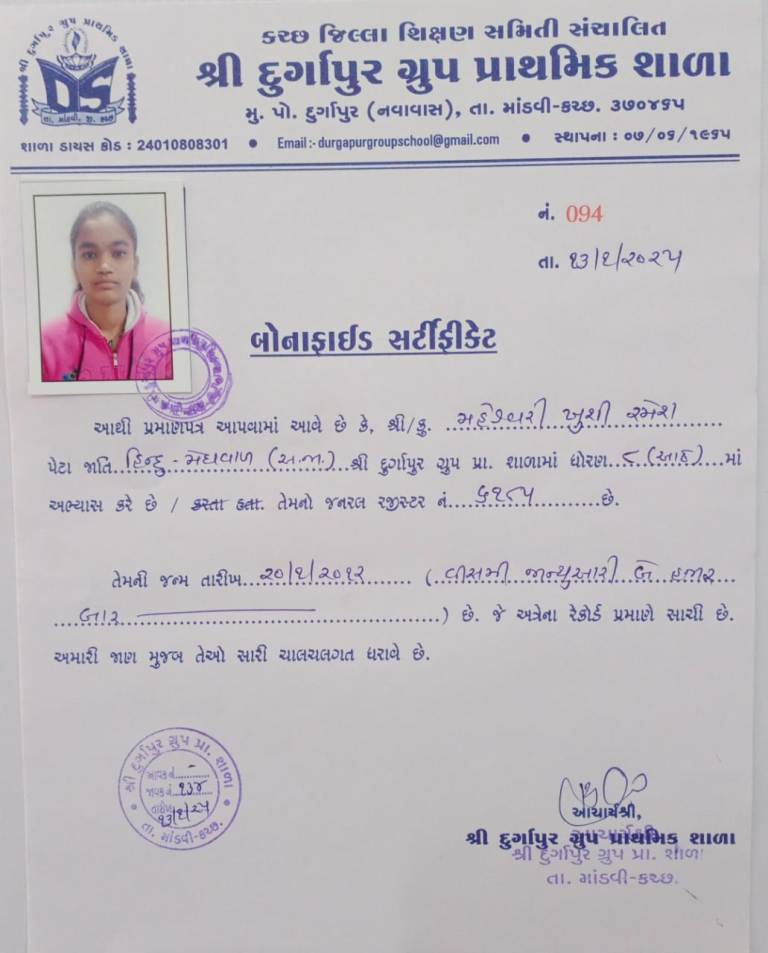 શ્રી દુર્ગાપુર ગ્રુપ પ્રાથમિક શાળા
DS
તા. માંડવી, જી. કચ્છ
કચ્છ જિલ્લા શિક્ષણ સમિતી સંચાલિત
શ્રી દુર્ગાપુર ગ્રુપ પ્રાથમિક શાળા
મુ. પો. દુર્ગાપુર (નવાવાસ), તા. માંડવી-કચ્છ. ૩૭૦૪૬૫
શાળા ડાયસ કોડ : 24010808301 • Email :- durgapurgroupschool@gmail.com • સ્થાપના : ૦૫/૦૬/૧૯૬૫
નં. 094
તા. ૧૩/૧/૨૦૨૫
બોનાફાઈડ સર્ટીફીકેટ
આથી પ્રમાણપત્ર આપવામાં આવે છે કે, શ્રી/કુ. મહેશ્વરી ખુશી રમેશ
પેટા જાતિ હિન્દુ - મેઘવાળ (અ.જા.) શ્રી દુર્ગાપુર ગ્રુપ પ્રા. શાળામાં ધોરણ ૮ (આઠ) માં
અભ્યાસ કરે છે / કરતા હતા. તેમનો જનરલ રજીસ્ટર નં. ૬૧૮૫ છે.
તેમની જન્મ તારીખ ૨૦/૧/૨૦૧૨ ( વીસમી જાન્યુઆરી બે હજાર
બાર ) છે. જે અત્રેના રેકોર્ડ પ્રમાણે સાચી છે.
અમારી જાણ મુજબ તેઓ સારી ચાલચલગત ધરાવે છે.
શ્રી દુર્ગાપુર ગ્રુપ પ્રા. શાળા
આવક નં. -
જાવક નં. ૧૩૪
તારીખ ૧૩/૧/૨૫
તા. માંડવી-કચ્છ.
આચાર્યશ્રી,
શ્રી દુર્ગાપુર ગ્રુપ પ્રાથમિક શાળા
આચાર્યશ્રી
શ્રી દુર્ગાપુર ગ્રુપ પ્રા. શાળા
તા. માંડવી-કચ્છ.